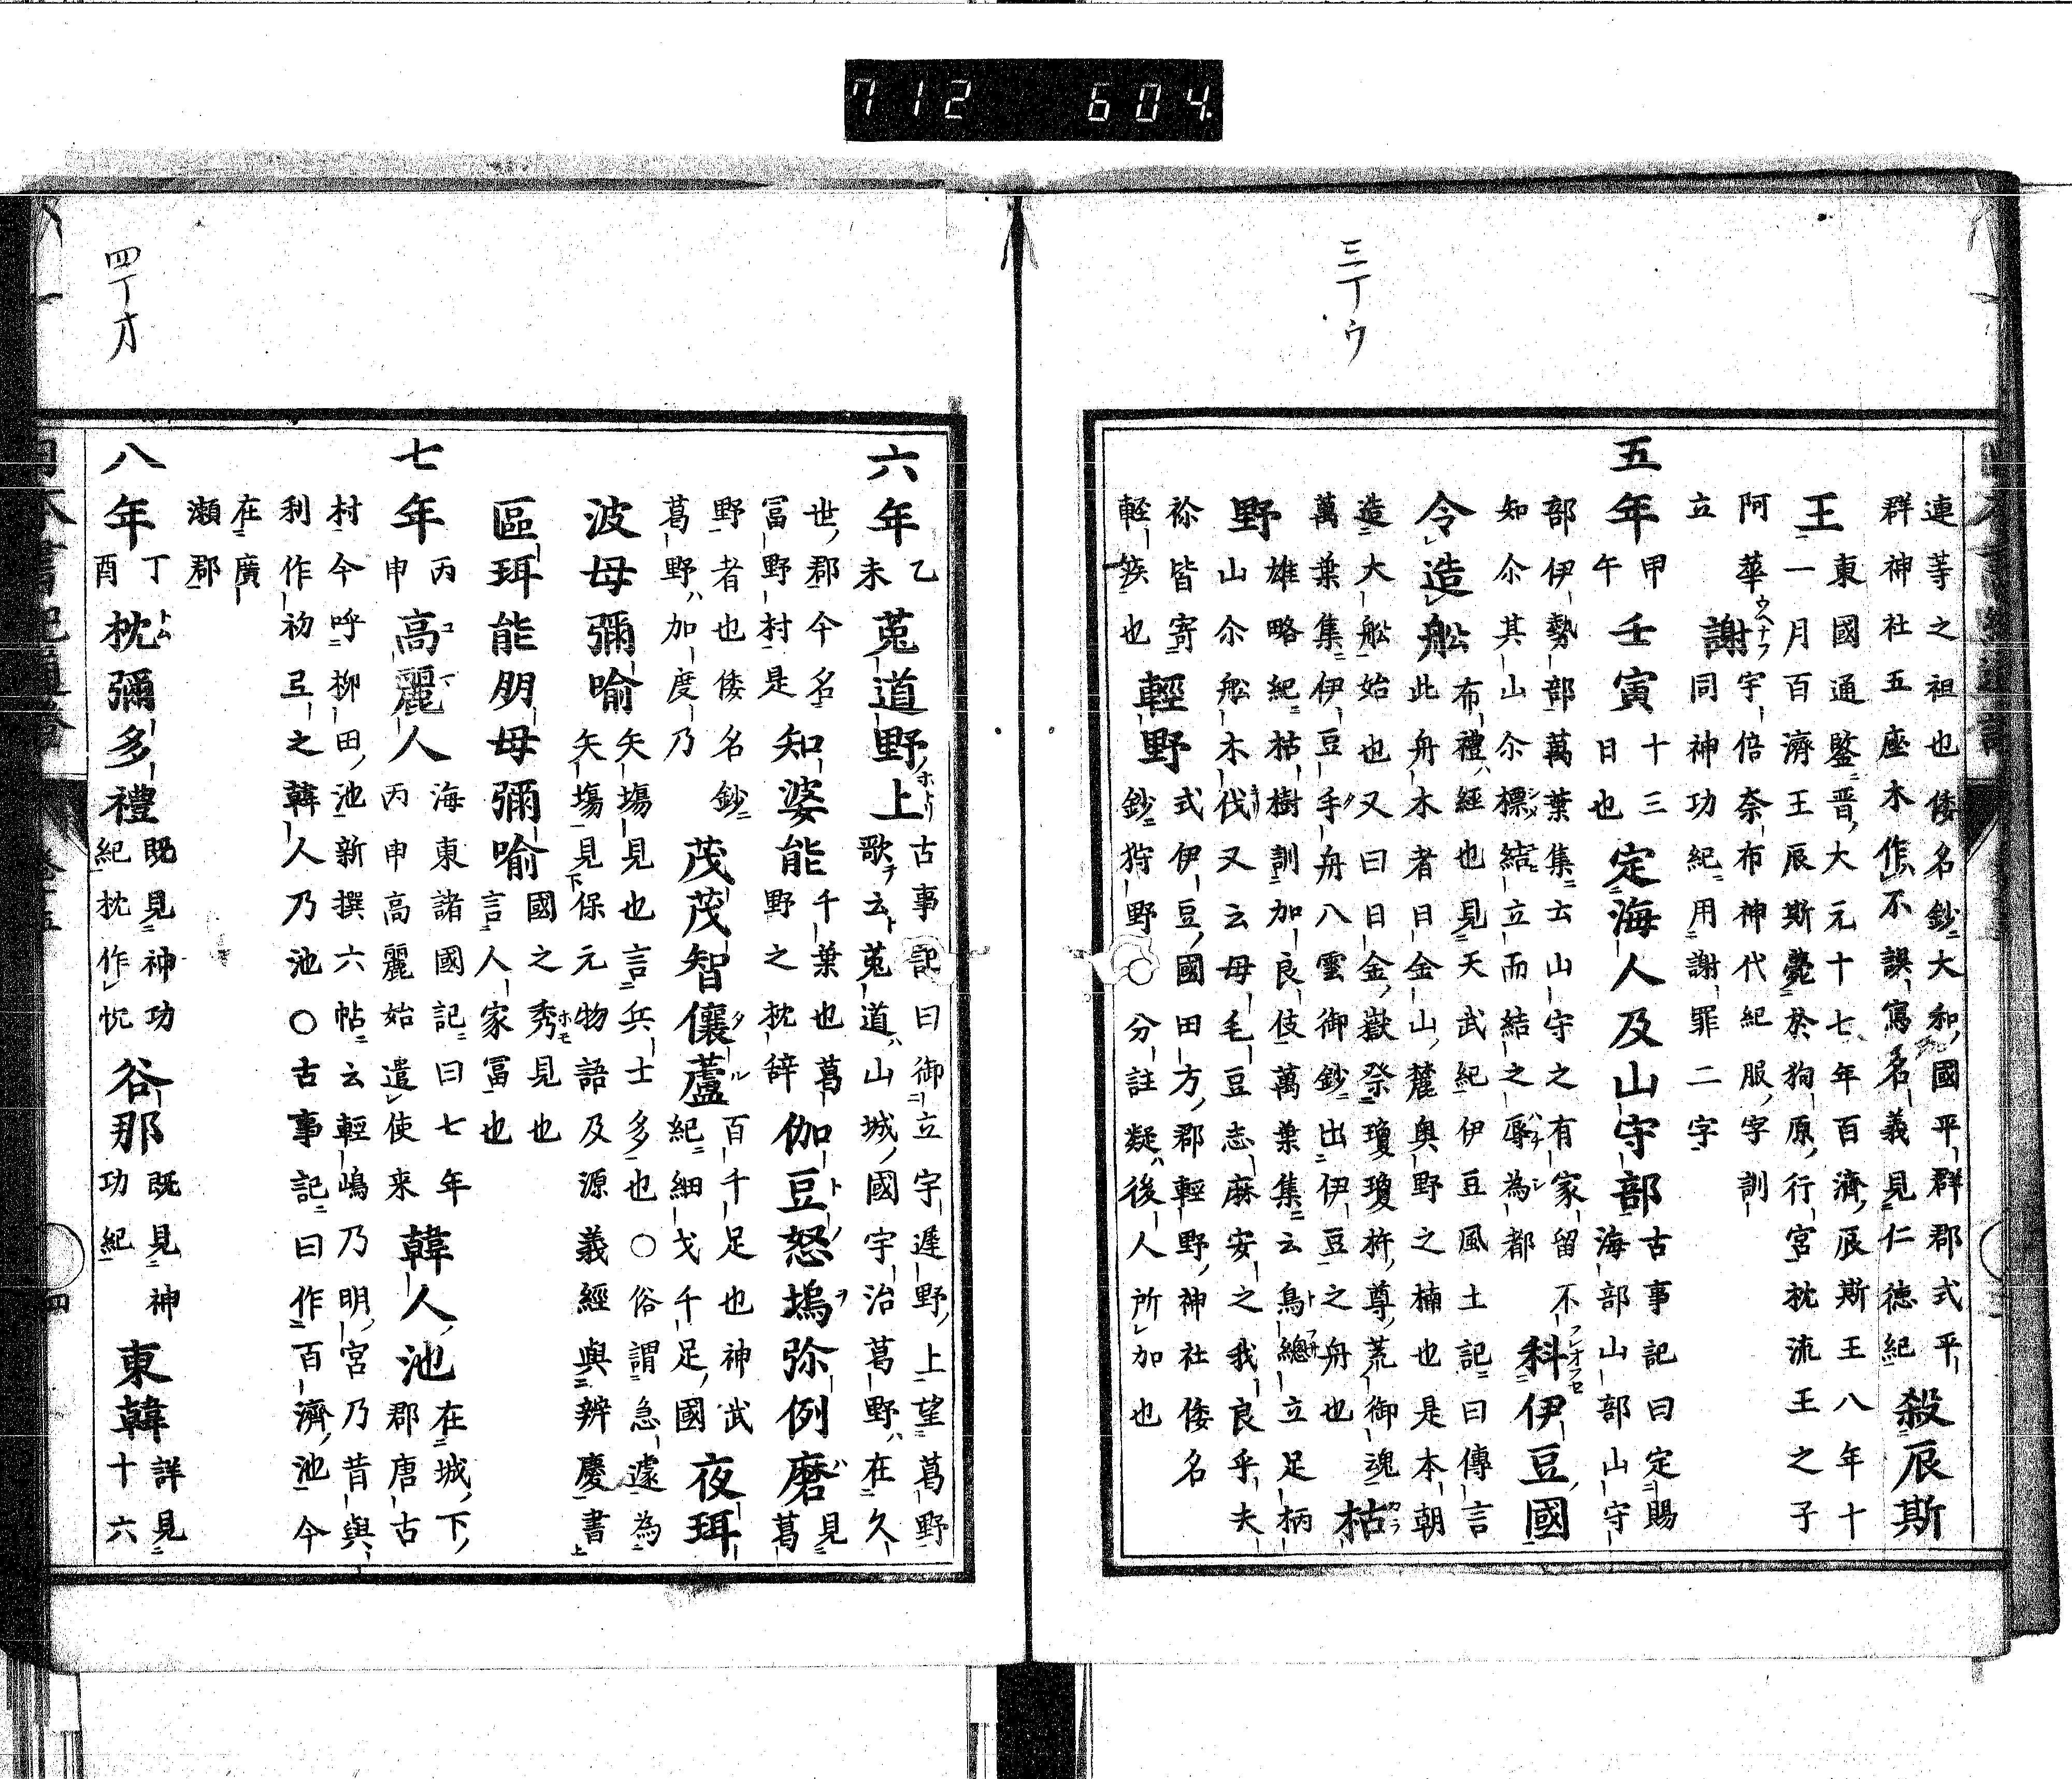 712 604.
三丁ウ
連等之祖也倭名鈔大和國平群郡式平
群神社五座木作不誤寫名義見仁徳紀 殺辰斯
王 東國通鑑晋大元十七年百濟辰斯王八年十
一月百濟王辰斯薨於狗原行宮枕流王之子
阿華 謝 ウヘナフ 字倍奈布神代紀服字訓
立 同神功紀用謝罪二字
五年 甲午 壬寅 十三日也 定海人及山守部 古事記曰定賜海部山部山守
部伊勢部萬葉集云山守之有家留不
知尒其山尒標結立而結之辱為都 科 フレオフセ 伊豆國
令造舩 布禮経也見天武紀伊豆風土記曰傳言
此舟木者日金山麓奥野之楠也是本朝
造大舩始也又曰日金嶽祭瓊瓊杵尊荒御魂 枯
萬葉集伊豆手舟八雲御鈔出伊豆之舟也
野 雄略紀枯樹訓加良伎萬葉集云鳥總立足柄
山尒舩木伐又云母毛豆志麻安之我良乎夫
祢皆寄 輕野 式伊豆國田方郡輕野神社倭名
輕簇也 鈔狩野〇分註疑後人所加也
四丁オ
六年 乙未 菟道野上 ホトリ 古事記曰御立宇遅野上望葛野
歌云菟道山城國宇治葛野在久
世郡今名 知婆能 千葉也葛野之枕辞 伽豆怒塢弥例磨 見葛
冨野村是
野者也倭名鈔
葛野加度乃 茂茂智儴蘆 タル 百千足也神武紀細戈千足國 夜珥
波母彌喻 矢塲見也言兵士多也〇俗謂急遽為
矢塲見保元物語及源義經與辨慶書
區珥能朋母彌喻 國之秀見也 ホモ
言人家冨也
七年 丙申 高麗人 海東諸國記曰七年丙申高麗始遣使来 韓人池 在城下郡唐古
村今呼柳田池新撰六帖云輕嶋乃明宮乃昔與
利作初弖之韓人乃池〇古事記曰作百濟池今
在廣
瀬郡
八年 丁酉 枕彌多禮 トム 既見神功紀枕作忱 谷那 既見神功紀 東韓 詳見十六
四